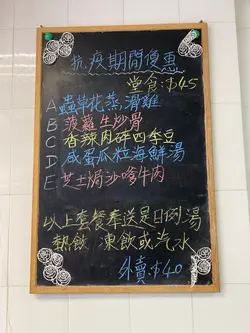 抗疫期間優惠
堂食:$45
A 蟲草花蒸滑雞
B 菠蘿生炒骨
C 香辣肉碎四季豆
D 咸蛋瓜粒海鮮湯
E 芝士焗沙嗲牛肉
以上套餐奉送是日例湯
熱飲 凍飲或汽水
外賣:$40